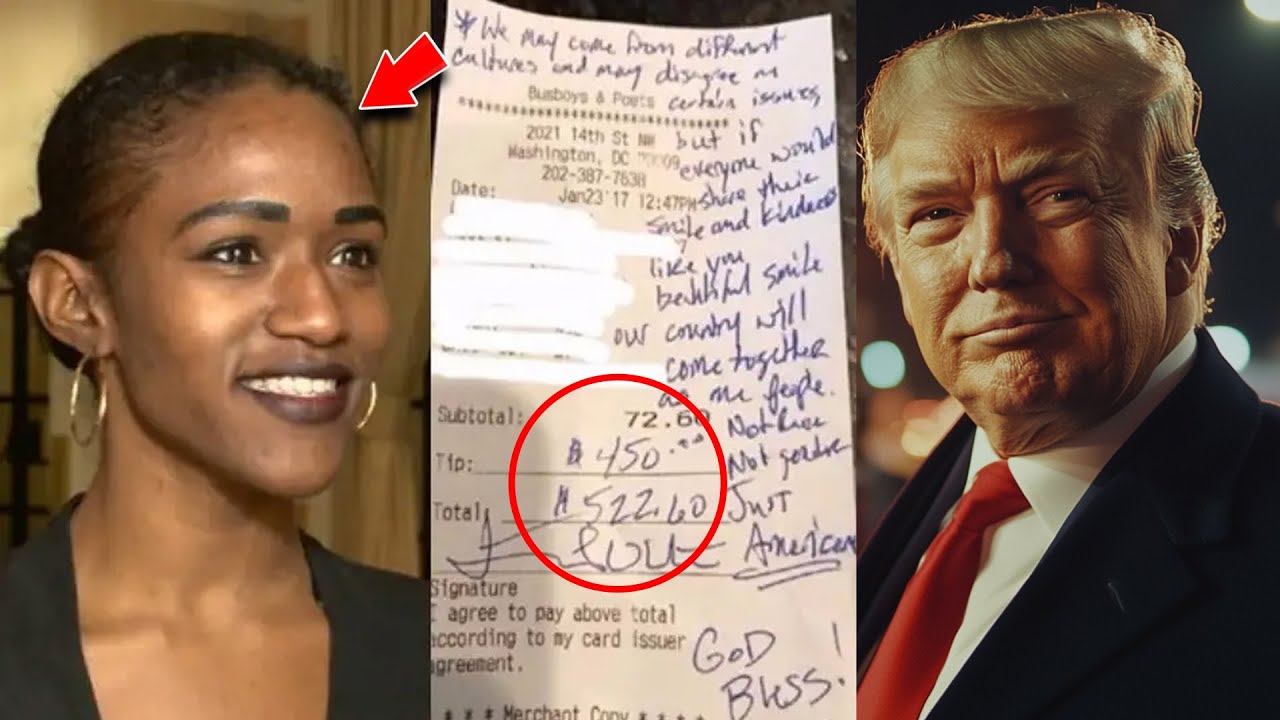 * We may come from different
cultures and may disagree on
certain issues,
but if
everyone would
share their
smile and kindness
like your
beautiful smile
our country will
come together
as one people.
Not Race
Not gender
Just
American
God
Bless!
Busboys & Poets
************************
2021 14th St NW
Washington, DC
202-387-7638
Date: Jan23'17 12:47PM
Subtotal: 72.60
Tip: $ 450.00
Total: $ 522.60
Signature
I agree to pay above total
according to my card issuer
agreement.
* * * Merchant Copy * * * *